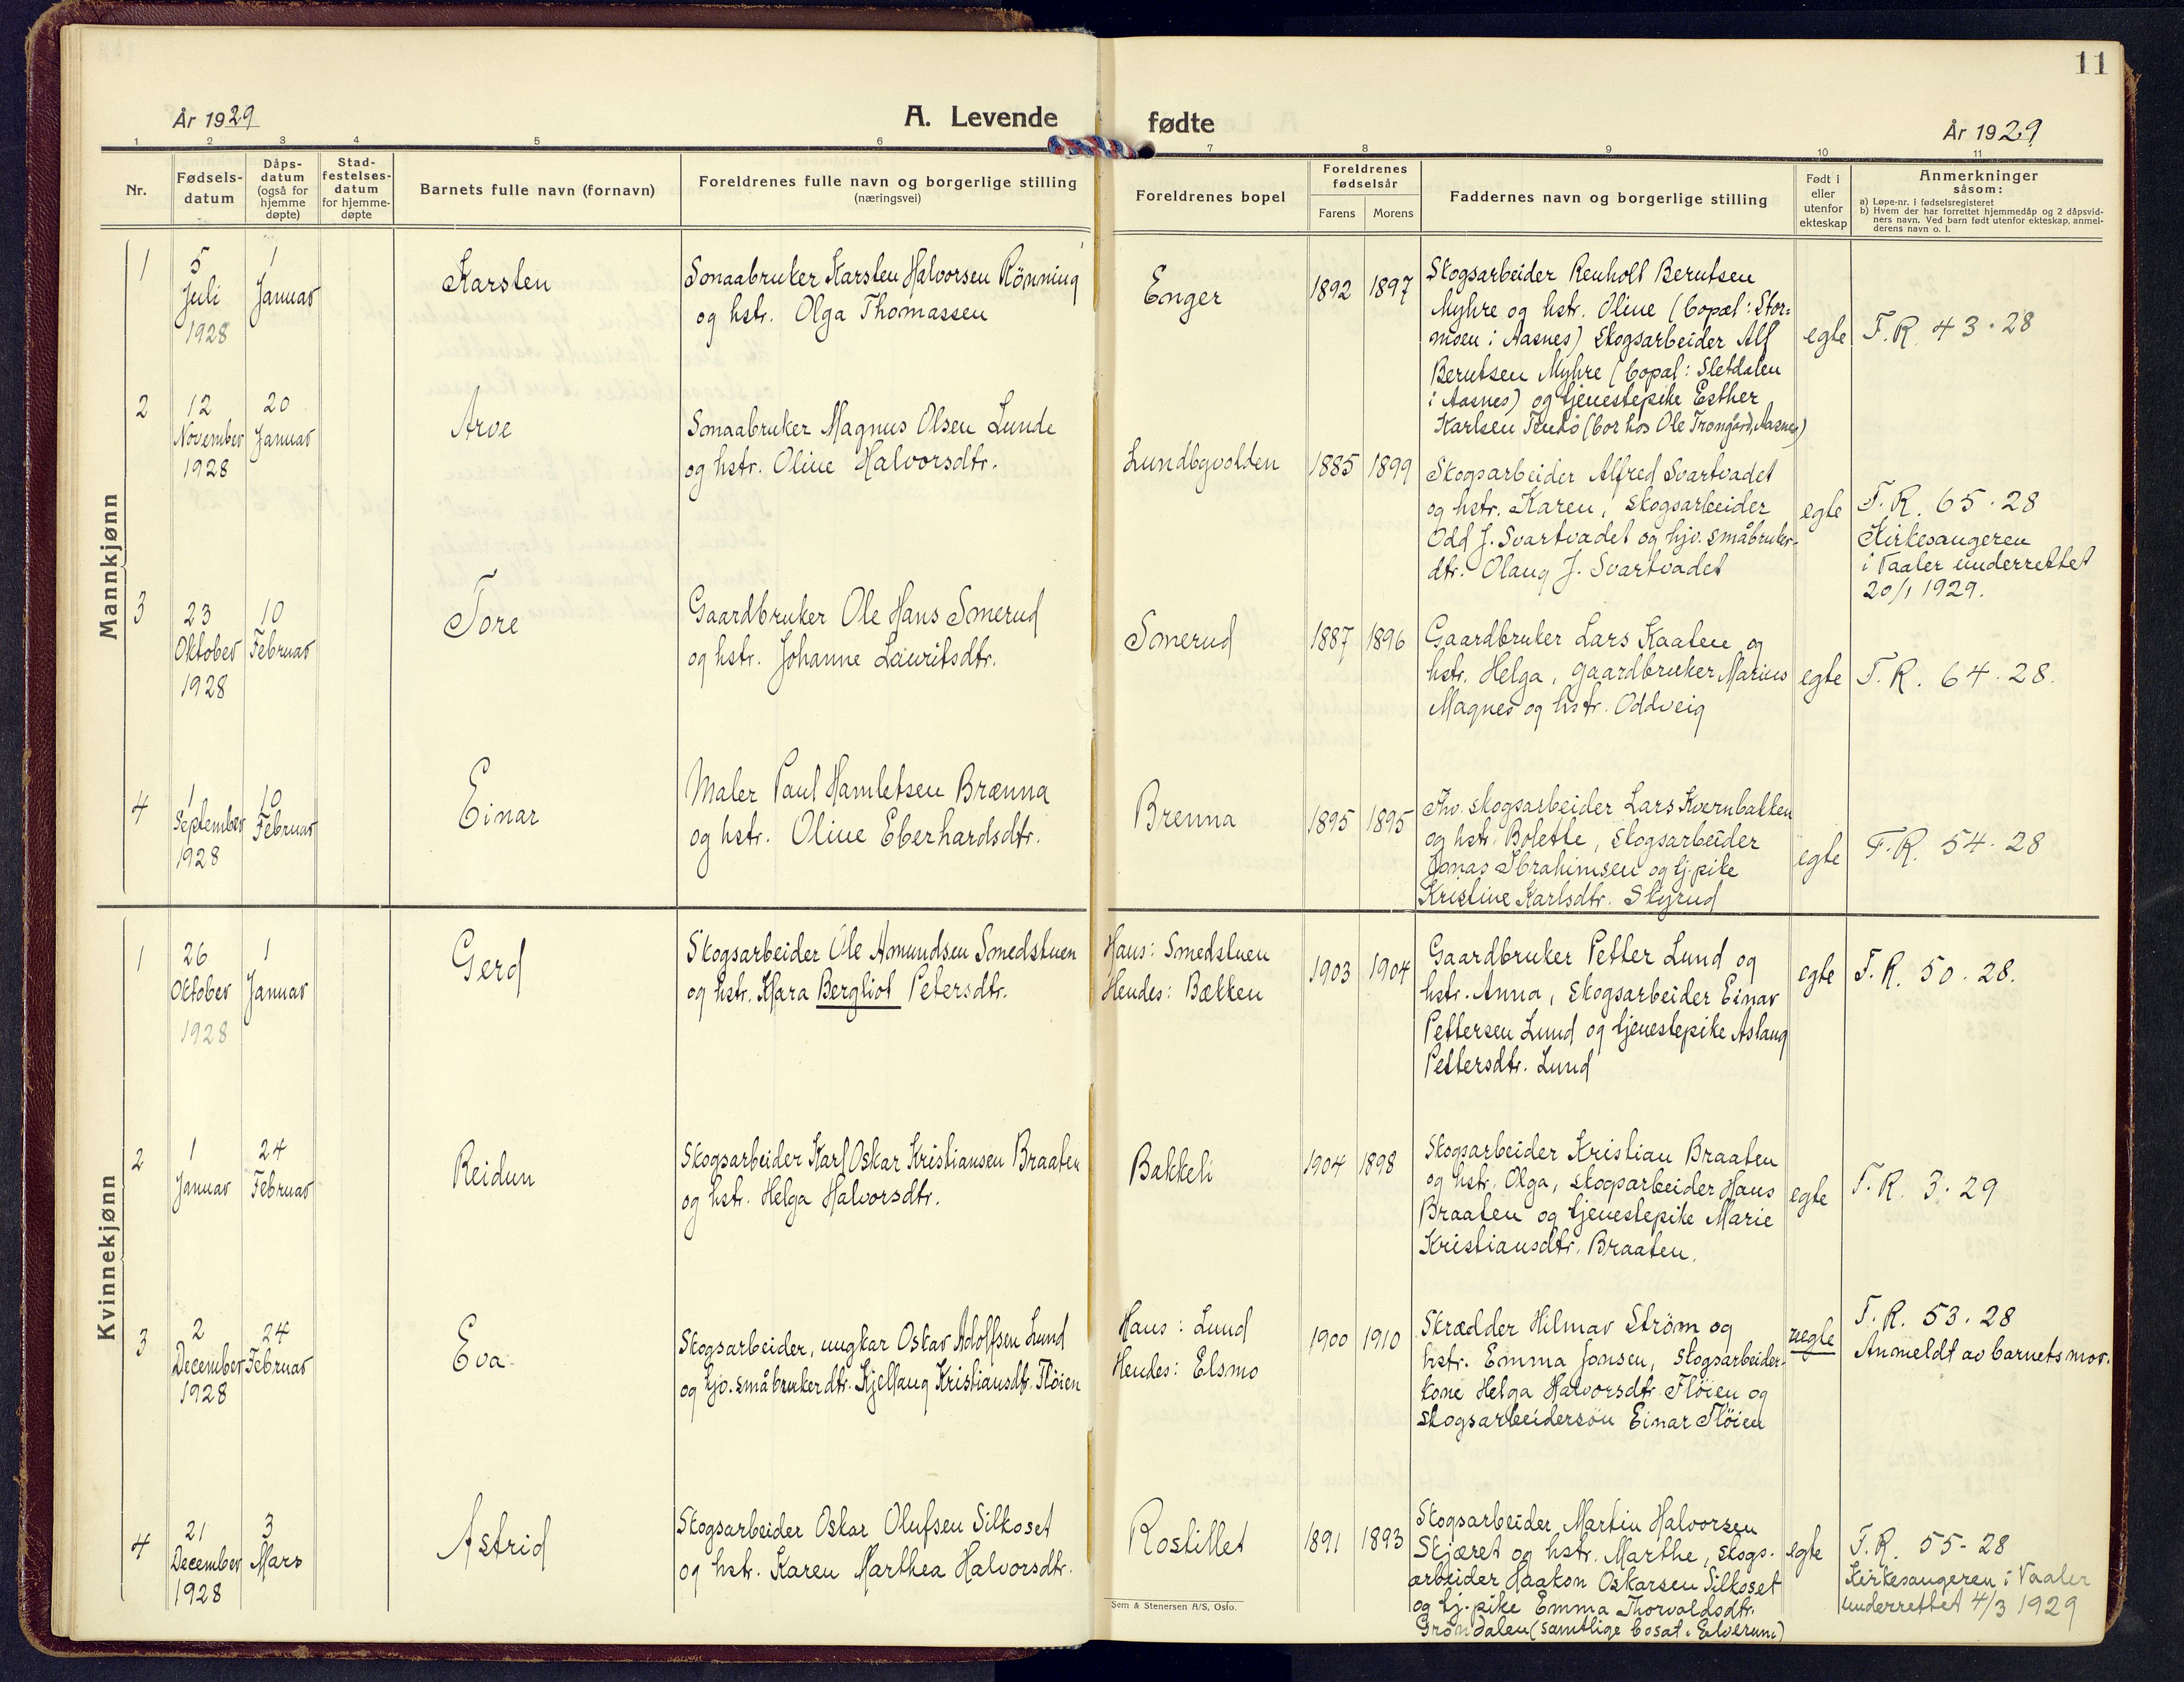 11
År 1929
A. Levende fødte
År 1929
1 2 3 4 5 6 7 8 9 10 11
Nr.
Fødsels-
datum
Dåps-
datum
(også for
hjemme
døpte)
Stad-
festelses-
datum
for hjemme-
døpte
Barnets fulle navn (fornavn)
Foreldrenes fulle navn og borgerlige stilling
(næringsvei)
Foreldrenes bopel
Foreldrenes
fødselsår
Farens Morens
Faddernes navn og borgerlige stilling
Født i
eller
utenfor
ekteskap
Anmerkninger
såsom:
a) Løpe-nr. i fødselsregisteret
b) Hvem der har forrettet hjemmedåp og 2 dåpsvid-
ners navn. Ved barn født utenfor ekteskap, anmel-
derens navn o. l.
Mannkjønn
1
5
Juli
1928
1
Januar
Karsten
Smaabruker Karsten Halvorsen Rönning
og hstr. Olga Thomassen
Enger
1892 1897
Skogsarbeider Renholt Berntsen
Myhre og hstr. Oline (bopæl: Stor=
moen i Aasnes) skogsarbeider Alf
Berntsen Myhre (bopæl: Sletdalen
i Aasnes) og tjenestepike Esther
Karlsen (bor hos Ole Aasnes)
egte
F.R. 43.28
2
12
November
1928
20
Januar
Arve
Smaabruker Magnus Olsen Lunde
og hstr. Oline Halvorsdtr.
Lundbyvolden
1885 1899
Skogsarbeider Alfred Svartvadet
og hstr. Karen, skogsarbeider
Odd J. Svartvadet og hjv. småbruker-
dtr. Olaug J. Svartvadet
egte
F.R. 65.28
Kirkesangeren
i Vaaler underrettet
20/1 1929.
3
23
Oktober
1928
10
Februar
Tore
Gaardbruker Ole Hans Smerud
og hstr. Johanne Lauritsdtr.
Smerud
1887 1896
Gaardbruker Lars Kaaten og
hstr. Helga, gaardbruker Marius
Magnes og hstr. Oddveig
egte
F.R. 64.28.
4
1
September
1928
10
Februar
Einar
Maler Paul Hamletsen Brænna
og hstr. Oline Eberhardsdtr.
Brenna
1895 1895
Fhv. skogsarbeider Lars Kvernbakken
og hstr. Bolette, skogsarbeider
Jonas Ibrahimsen og tj.pike
Kristine Karlsdtr. Skyrud
egte
F.R. 54.28
Kvinnekjønn
1
26
Oktober
1928
1
Januar
Gerd
Skogsarbeider Ole Amundsen Smedstuen
og hstr. Klara Bergliot Petersdtr.
Hans: Smedstuen
Hendes: Bækken
1903 1904
Gaardbruker Petter Lund og
hstr. Anna, skogsarbeider Einar
Pettersen Lund og tjenestepike Aslaug
Pettersdtr. Lund
egte
F.R. 50.28.
2
1
Januar
24
Februar
Reidun
Skogsarbeider Karl Oskar Kristiansen Braaten
og hstr. Helga Halvorsdtr.
Bakkeli
1904 1898
Skogsarbeider Kristian Braaten
og hstr. Olga, skogsarbeider Hans
Braaten og tjenestepike Marie
Kristiansdtr. Braaten.
egte
F.R. 3.29
3
2
December
1928
24
Februar
Eva
Skogsarbeider, ungkar Oskar Adolfsen Lund
og hjv. småbrukerdtr. Kjellaug Kristiansdtr. Flöien
Hans: Lund
Hendes: Elsmo
1900 1910
Skrædder Hilmar Ström og
hstr. Emma Jonsen, skogsarbeider-
kone Helga Halvorsdtr. Flöien og
skogsarbeidersön Einar Flöien
uegte
F.R. 53.28
Anmeldt av barnets mor.
4
21
December
1928
3
Mars
Astrid
Skogsarbeider Oskar Olufsen Silkoset
og hstr. Karen Marthea Halvorsdtr.
Rostillet
1891 1893
Skogsarbeider Martin Halvorsen
Skjæret og hstr. Marthe, skogs-
arbeider Haakon Oskarsen Silkoset
og tj.pike Emma Thorvaldsdtr.
Gröndalen (samtlige bosat i Elverum)
egte
F.R. 55-28
Kirkesangeren i Vaaler
underrettet 4/3 1929
Sem & Stenersen A/S, Oslo.